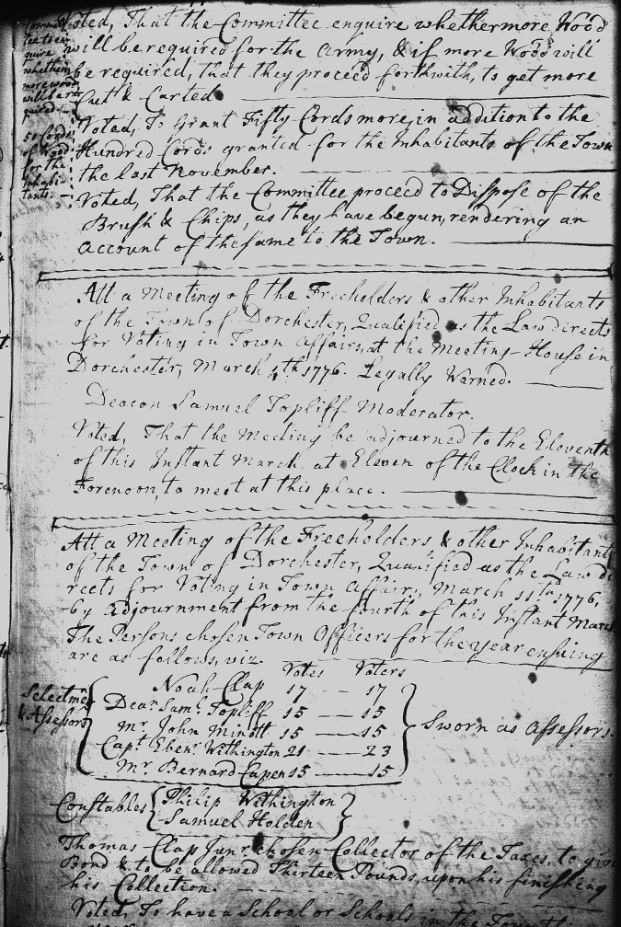 Voted, That the Committee enquire whether more Wood
will be required for the Army, & if more Wood will
be required, that they proceed forthwith, to get more
Cut & Carted.
Voted, To Grant Fifty Cords more, in addition to the
Hundred Cords granted for the Inhabitants of the Town
the last November.
Voted, That the Committee proceed to Dispose of the
Brush & Chips, as they have begun, rendering an
account of the same to the Town.
Committee to enquire whether more wood will be required
50 Cords of Wood for the Inhabitants.
Att a Meeting of the Freeholders & other Inhabitants
of the Town of Dorchester, Qualified as the Law directs
for Voting in Town Affairs, at the Meeting-House in
Dorchester, March 4th 1776. Legally Warned.
Deacon Samuel Topliff Moderator.
Voted, That the Meeting be adjourned to the Eleventh
of this Instant March at Eleven of the Clock in the
Forenoon, to meet at this place.
Att a Meeting of the Freeholders & other Inhabitants
of the Town of Dorchester, Qualified as the Law di-
rects for Voting in Town Affairs, March 11th 1776,
by adjournment from the fourth of this Instant March
The Persons chosen Town Officers for the year ensuing
are as follows, viz. Votes Voters
Selectmen & Assessors
Noah Clap 17 — 17
Dean. Saml. Topliff 15 — 15
Mr. John Minott 15 — 15
Capt. Ebenr. Withington 21 — 23
Mr. Bernard Capen 15 — 15
Sworn as Assessors.
Constables Philip Withington
Samuel Holden
Thomas Clap Junr. chosen Collector of the Taxes, to give
Bond & to be allowed Thirteen Pounds, upon his finishing
his Collection.
Voted, To have a School or Schools in the